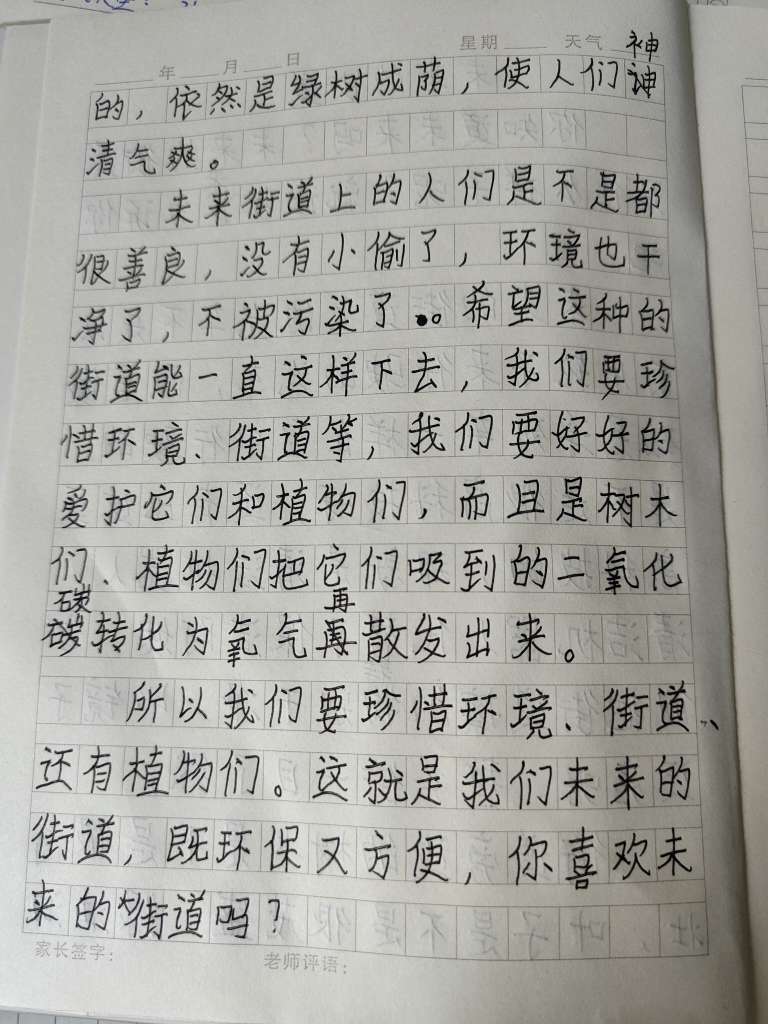 年 月 日 星期 天气
神
的，依然是绿树成荫，使人们神
清气爽。
未来街道上的人们是不是都
很善良，没有小偷了，环境也干
净了，不被污染了。希望这种的
街道能一直这样下去，我们要珍
惜环境、街道等，我们要好好的
爱护它们和植物们，而且是树木
们、植物们把它们吸到的二氧化
碳 再
碳转化为氧气再散发出来。
所以我们要珍惜环境、街道、
还有植物们。这就是我们未来的
街道，既环保又方便，你喜欢未
来的街道吗？
家长签字： 老师评语：